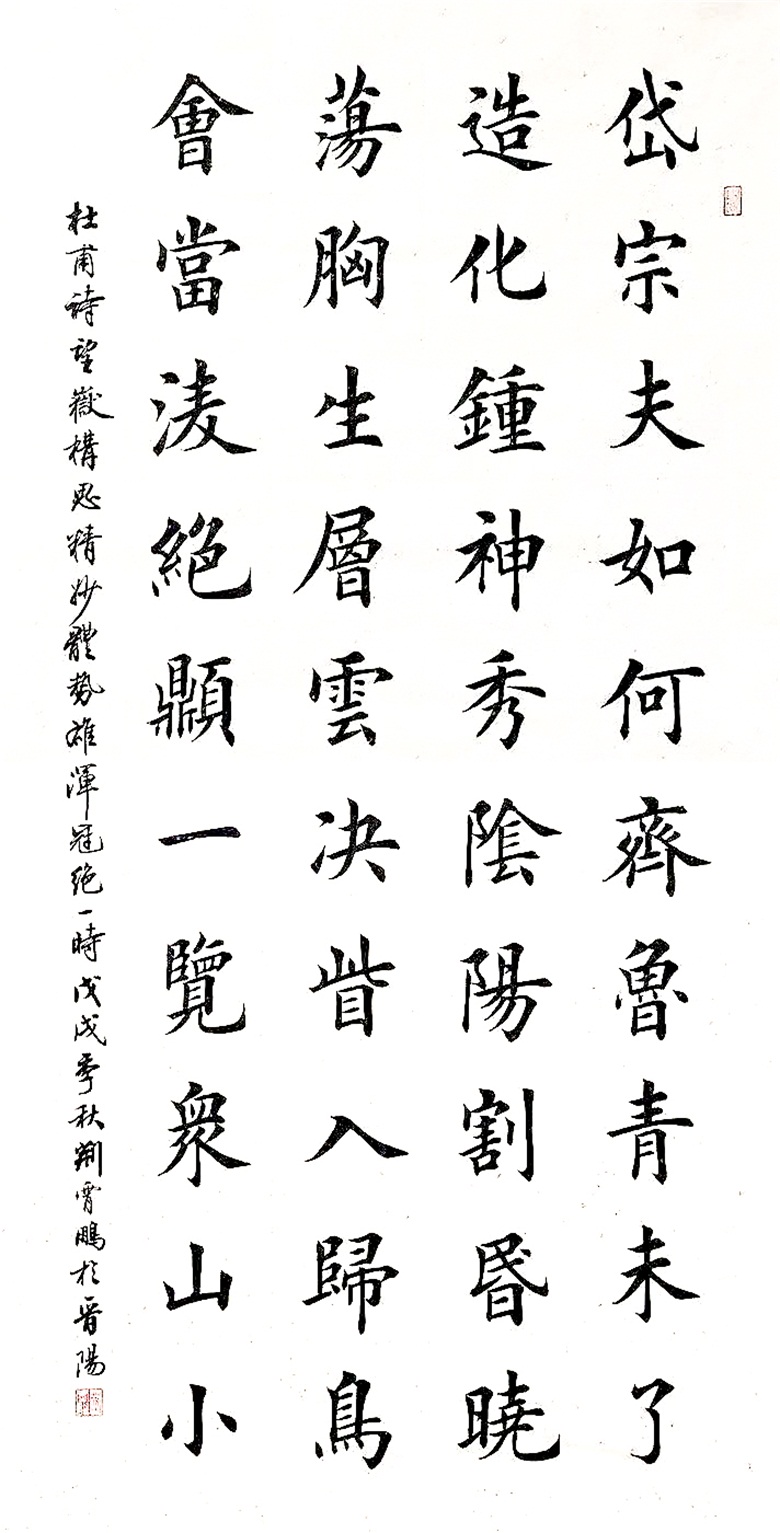 岱宗夫如何齊魯青未了
造化鍾神秀陰陽割昬曉
蕩胸生層雲決眥入歸鳥
會當淩絕顚一覽衆山小
杜甫詩望嶽構思精妙體勢雄渾冠絕一時戊戌季秋荆霄鵬於晋陽